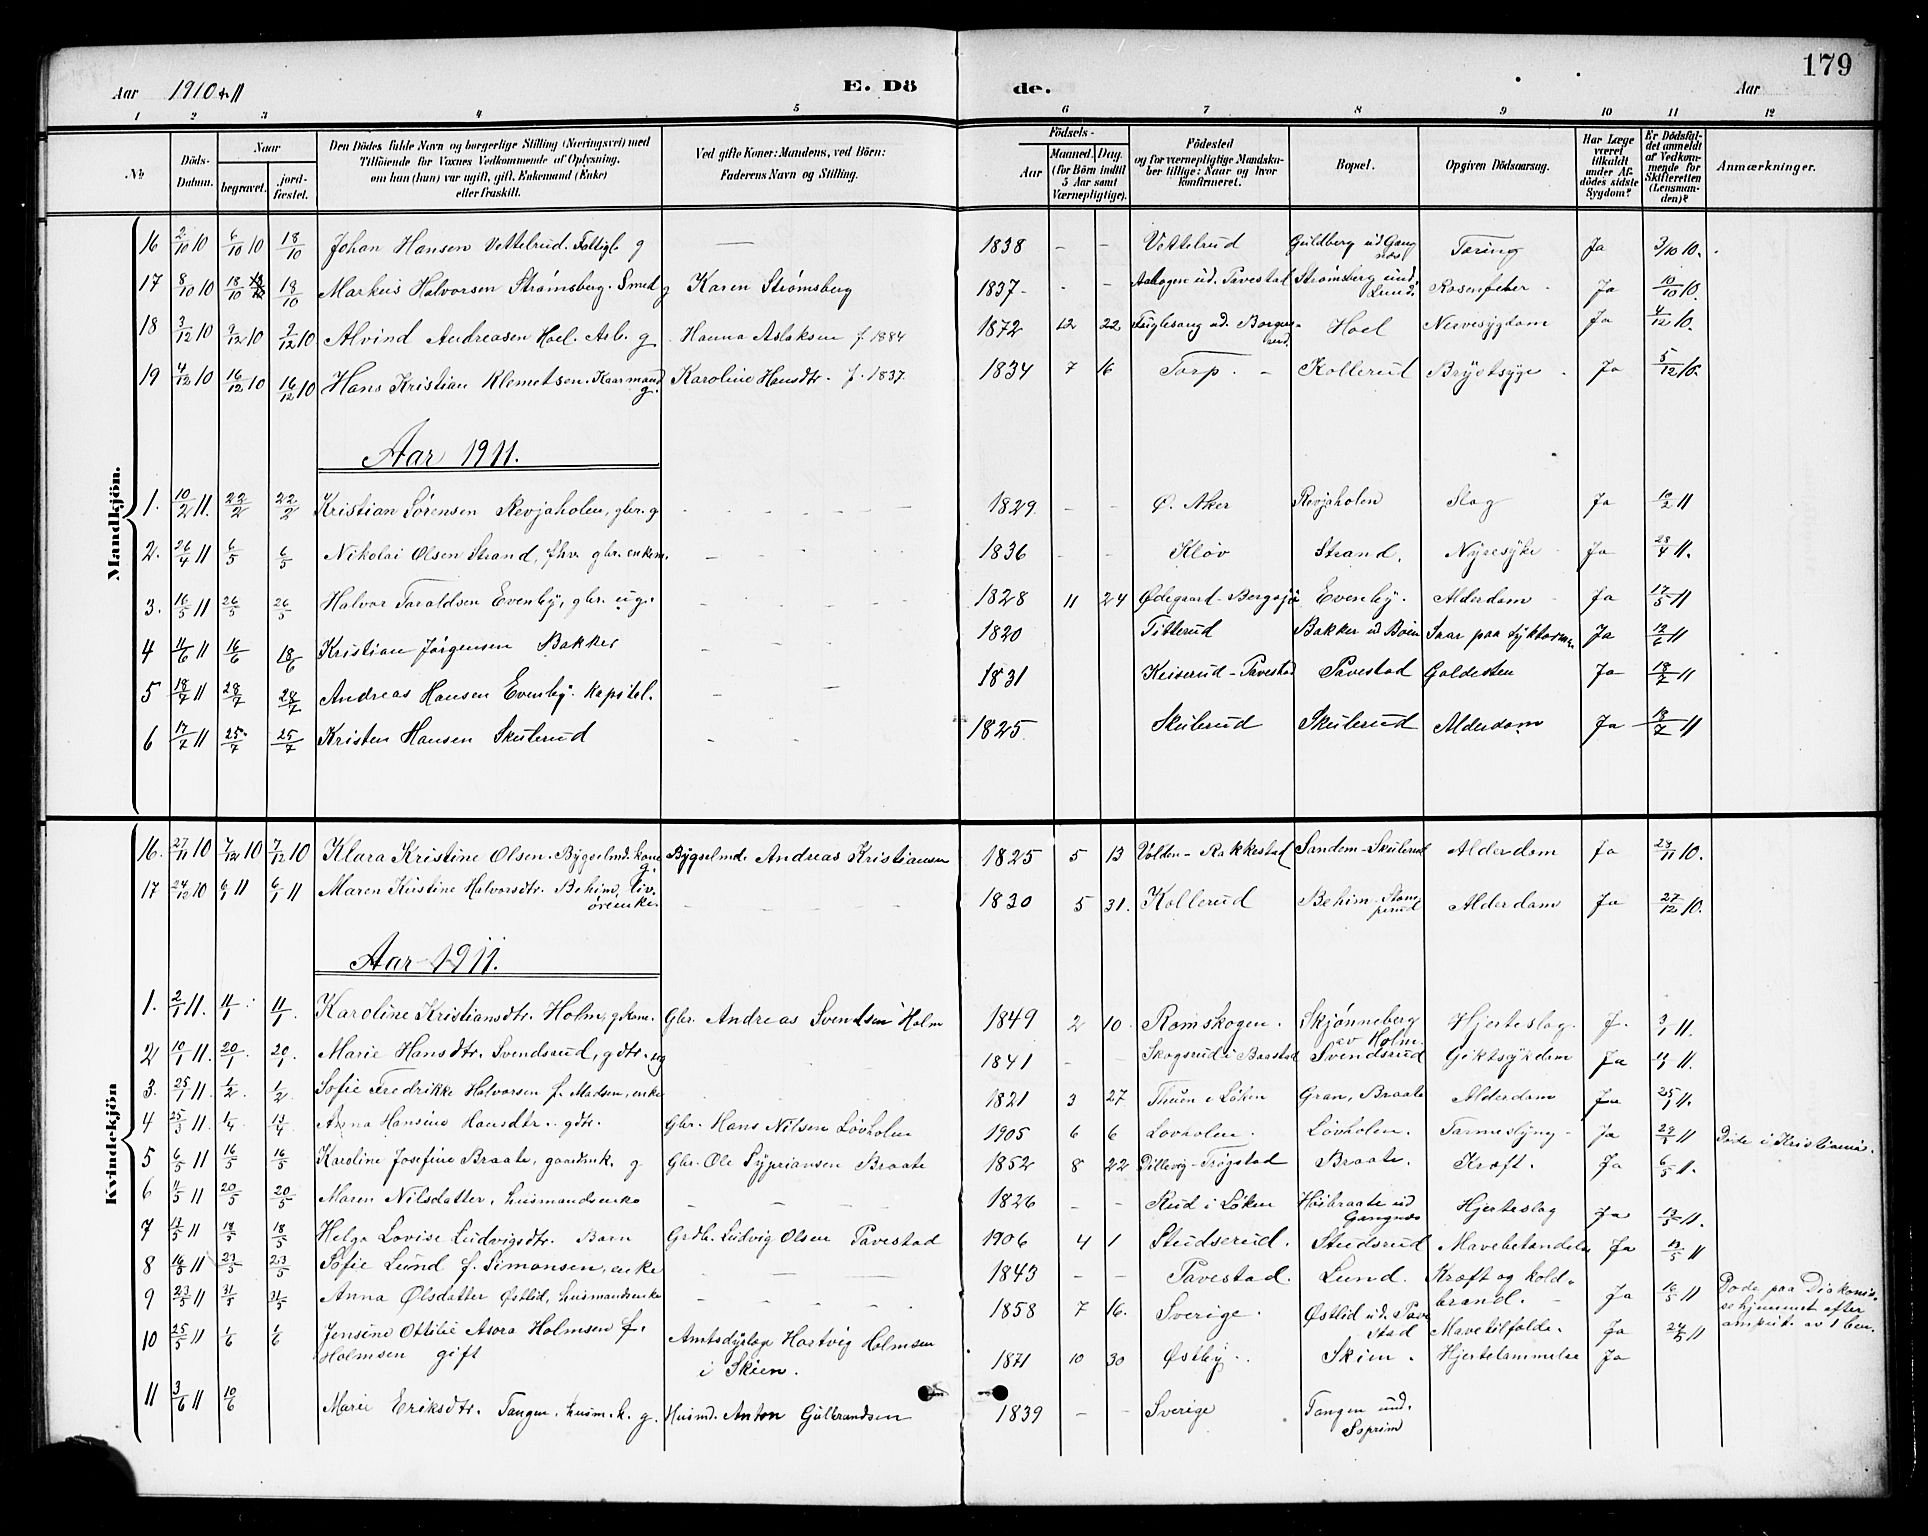 179
Aar 1910 & 11 E. Dö de. Aar
1 2 3 4 5 6 7 8 9 10 11 12
No
Döds-Datum.
Naar
begravet.
jord-fæstet.
Den Dödes fulde Navn og borgerlige Stilling (Næringsvei) med
Tilföiende for Voxnes Vedkommende af Oplysning,
om han (hun) var ugift, gift, Enkemand (Enke)
eller fraskilt.
Ved gifte Koner: Mandens, ved Börn:
Faderens Navn og Stilling.
Födsels-
Aar
Maaned. Dag.
(for Börn indtil
5 Aar samt
Værnepligtige).
Födested
og for værnepligtige Mandska-
ber tillige: Naar og hvor
konfirmeret.
Bopæl.
Opgiven Dödsaarsag.
Har Læge
været
tilkaldt
under Af-
dödes sidste
Sygdom?
Er Dödsfal-
det anmeldt
af Vedkom-
mende for
Skifteretten
(Lensman-
den)?
Anmærkninger.
Mandkjön.
16 2/10 10 6/10 10 18/10 Johan Hansen Vettelrud. Fattigl. g — 1838 - - Vettelrud Guldberg ud Gangnæs Tæring Ja 3/10 10.
17 8/10 10 18/10 18/10 Markus Halvorsen Strømsberg. Smed g Karen Strømsberg 1837 - - Aaltogen ud. Pavestad Strømsberg und. Lund. Rosenfeber Ja 10/10 10.
18 3/12 10 9/12 10 9/12 10 Alvind Andreasen Hoel. Arb. g Hanna Aslaksen f. 1884 1872 12 22 Fuglesang ud. Borgersrud. Hoel Nervesygdom Ja 4/12 10.
19 4/12 10 16/12 10 16/12 10 Hans Kristian Klemetsen. Kaarmand g. Karoline Hansdtr. f. 1837. 1834 7 16 Torp. Kollerud Brystsyge Ja 5/12 10.
Aar 1911.
1. 10/2 11. 22/2 22/2 Kristian Sørensen Revjaholen, gbr. g 1829. - - Ø. Aker Revjaholen Slag Ja 10/2 11
2. 26/4 11 6/5 6/5 Nikolai Olsen Strand, fhv. gbr. enkem. 1836 - - Kløv Strand. Nyresyke Ja 28/4 11.
3. 16/5 11 26/5 26/5 Halvor Taraldsen Evenby, gbr. ug. 1828 11 24 Ødegaard - Bergsjø Evenby. Alderdom Ja 17/5 11
4 11/6 11 16/6 18/6 Kristian Jørgensen Bakker 1820 Titterud Bakker ud Boen Saar paa Ja 12/6 11
5 18/7 11 28/7 28/7 Andreas Hansen Evenby. Kapitel. 1831 Keiserud - Pavestad Pavestad Galdesten Ja 18/7 11
6 17/7 11 25/7 25/7 Kristen Hansen Skulerud 1825 Skulerud Skulerud Alderdom Ja 18/7 11
Kvindekjön
16. 27/11 10 7/12 10 7/12 10 Klara Kristine Olsen. Bygselmd. kone g. Bygselmd. Andreas Kristiansen 1825 5 13 Volden - Rakkestad Sandem - Skulerud Alderdom Ja 29/11 10.
17 24/12 10 6/1 11 6/1 11 Maren Kristine Halvorsdtr. Behim, livøreenke. 1830 5 31. Kollerud Behim - Stomperud Alderdom Ja 27/12 10.
Aar 1911.
1. 2/1 11. 11/1 11/1. Karoline Kristiansdtr. Holm, g. kone. Gbr. Andreas Svendsen Holm 1849 2 10. Romskogen. Skjønneberg av Holm. Hjerteslag. J. 3/1 11.
2 10/1 11. 20/1. 20/1. Marie Hansdtr. Svendsrud, gdtr. ug 1841 - - Skogsrud i Baastad Svendsrud Giktsykdom Ja 11.
3. 25/1 11. 1/2. 1/2 Sofie Fredrikke Halvorsen f. Madsen, enke 1821 3 27 Thuen i Løken Gran, Braate Alderdom Ja 25/1 11.
4 25/3 11. 1/4 13/4 Anna Hansine Hansdtr. gdtr. Gbr. Hans Nilsen Løvholm 1905 6 6 Lovholen. Løvholen. Tarmeslyng Ja 11 Døde i Kristiania.
5 6/5 11 16/5 16/5 Karoline Josefine Braate, gaardmk. g Gbr. Ole Sypriansen Braate 1852 8 22 Dillevig - Trøgstad Braate. Kræft. Ja 6/5 11.
6 11/5 11 20/5 20/5 Maren Nilsdatter, husmandsenke 1826 - - Rud i Løken Høibraate ud Gangnæs Hjerteslag Ja 13/5 11.
7 13/5 11 18/5 18/5 Helga Lovise Ludvigsdtr. Barn Grdb. Ludvig Olsen Pavestad 1906 4 1 Studserud. Studsrud Mavebetændelse Ja 13/5 11
8 16/5 11 23/5 23/5 Sofie Lund f. Simonsen, enke 1843 - - Pavestad. Lund. Kræft og koldbrand. Ja 16/5 11 Døde paa Diakonissehjemmet efter amput. av 1 ben.
9 23/5 11 31/5 31/5 Anna Olsdatter Østlid, husmandsenke 1858 7 16. Sverige. Østlid ud. Pavestad Mavetilfælde. Ja 24/5 11
10 25/5 11 1/6 1/6 Jensine Ottilie Asora Holmsen f. Holmsen gift Amtsdyrlæge Hartvig Holmsen i Skien. 1871 10 30 Østby. Skien. Hjertelammelse Ja
11 3/6 11 10/6 Marie Eriksdtr. Tangen, husm.k. g. Husmd. Anton Gulbrandsen 1839 - - Sverige Tangen und. Soprim